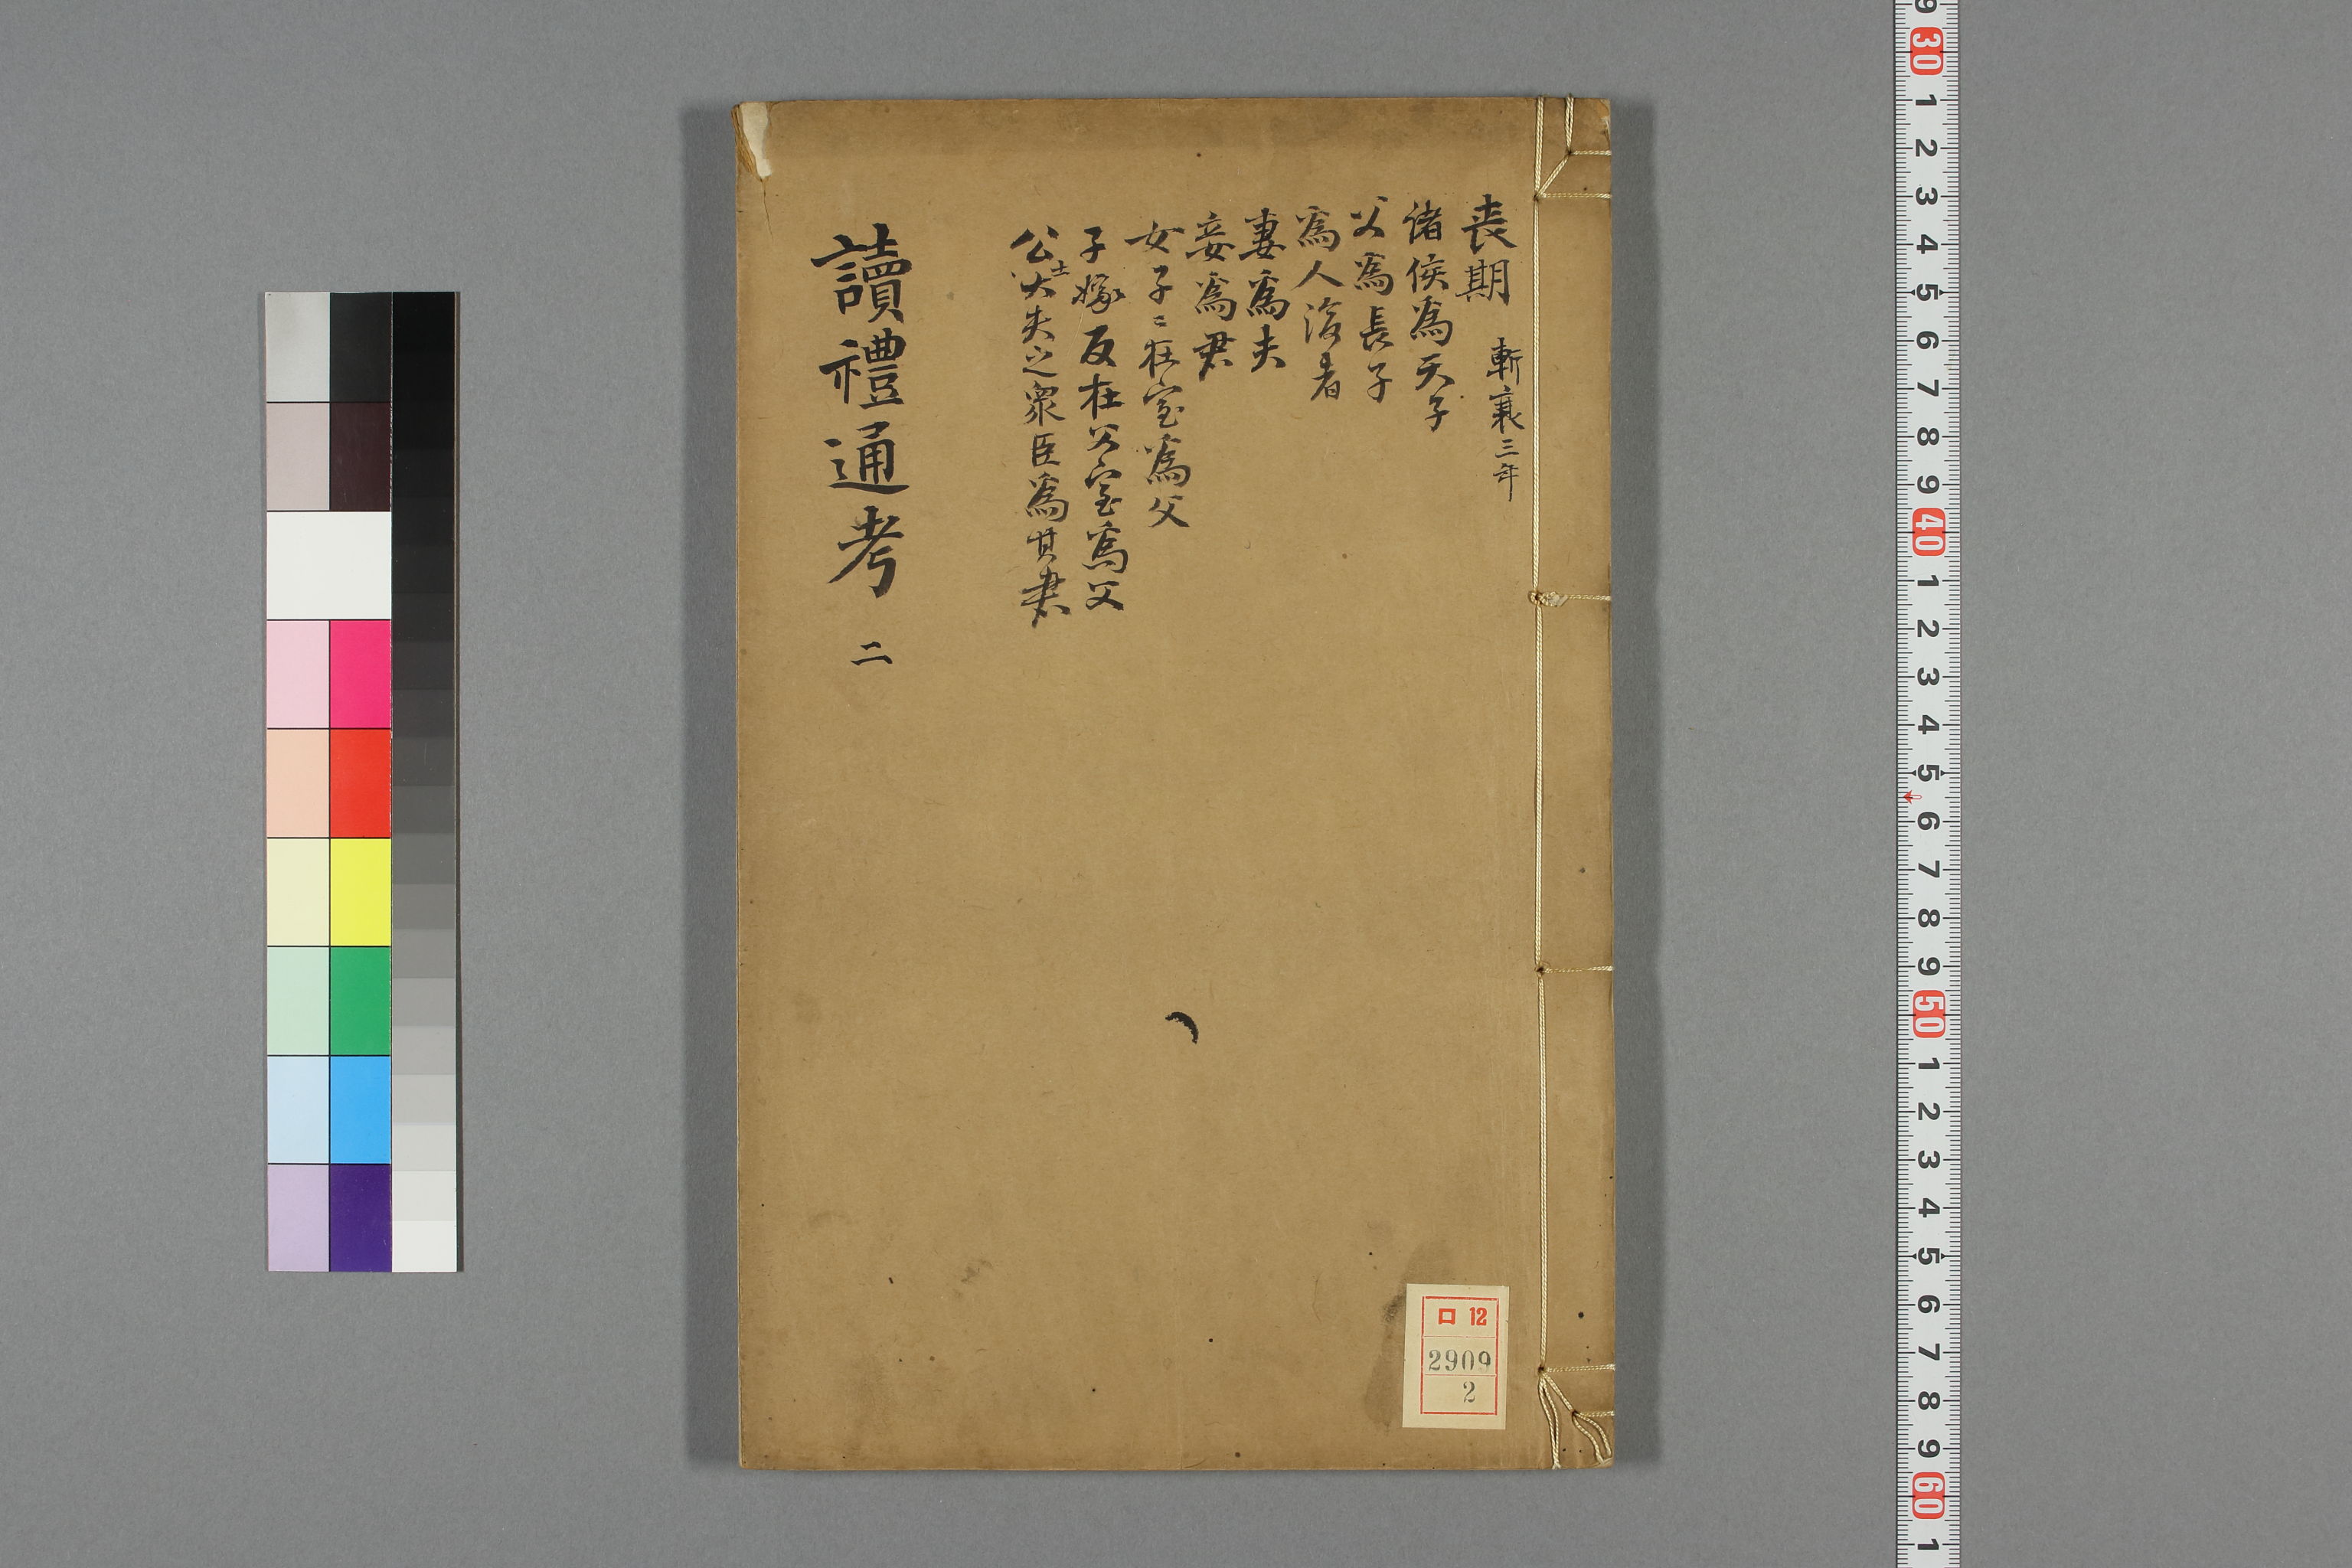 喪期 斬衰三年
諸侯為天子
父為長子
為人後者
妻為夫
妾為君
女子〻在室為父
子嫁反在父室為父
公士大夫之衆臣為其君
讀禮通考 二
ロ 12
2909
2
9 30 1 2 3 4 5 6 7 8 9 40 1 2 3 4 5 6 7 8 9 50 1 2 3 4 5 6 7 8 9 60 1